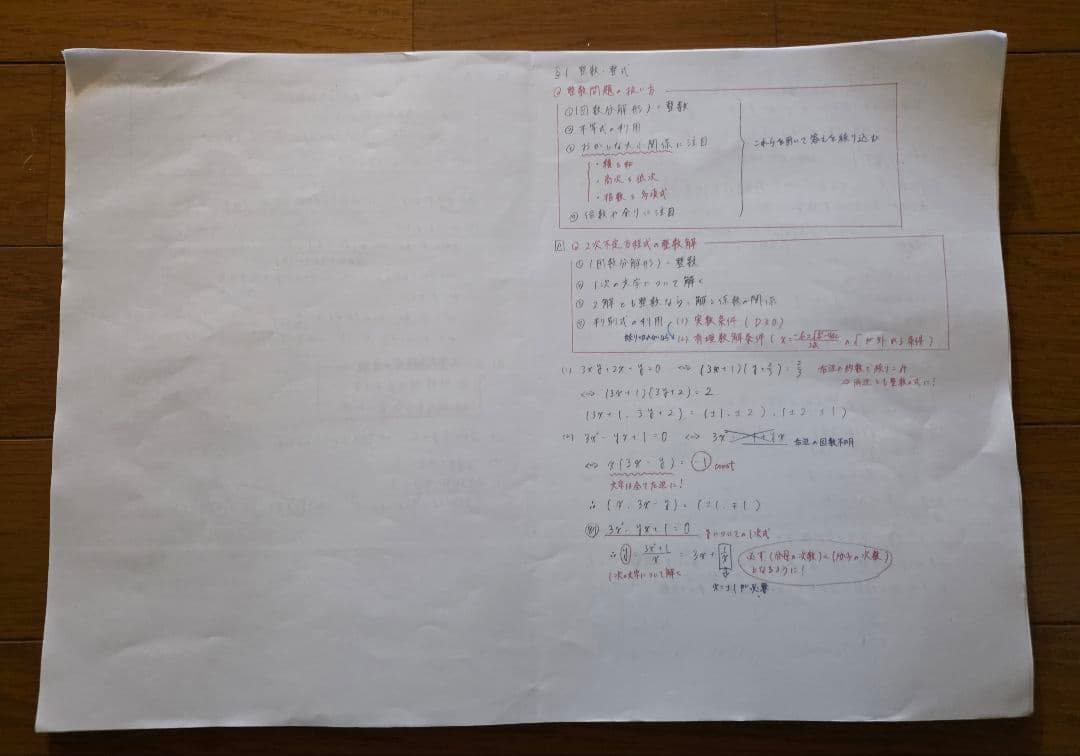 §1 整数・整式
整数問題の扱い方
① (因数分解形) = 整数
② 不等式の利用
③ おかしな大小関係に注目
・積と和
・高次と低次
・指数と多項式
④ 倍数や余りに注目
これらを用いて答えを絞り込む
2次不定方程式の整数解
① (因数分解形) = 整数
② 1次の文字について解く
③ 2解とも整数なら、解と係数の関係
④ 判別式の利用 (1) 実数条件 (D≧0)
(2) 有理数解条件 (x = の√が外れる条件)
(1) 3xy+2x-y=0 ⇔ (3x-1)(y+2/3) = -2/3
⇔ (3x-1)(3y+2) = -2
右辺の約数で絞り
⇒ 両辺とも整数の式に!
(2) 3x²-yx+1=0 ⇔ 右辺の因数不明
⇔ x(3x-y) = -1 const
文字は全て左辺に!
∴ (x, 3x-y) = (±1, ∓1)
別 3x²-yx+1=0 yについての1次式
∴ y = 3x²+1/x = 3x + 1/x
1次の文字について解く
必ず (分母の次数)
となるように!
x=±1が必要